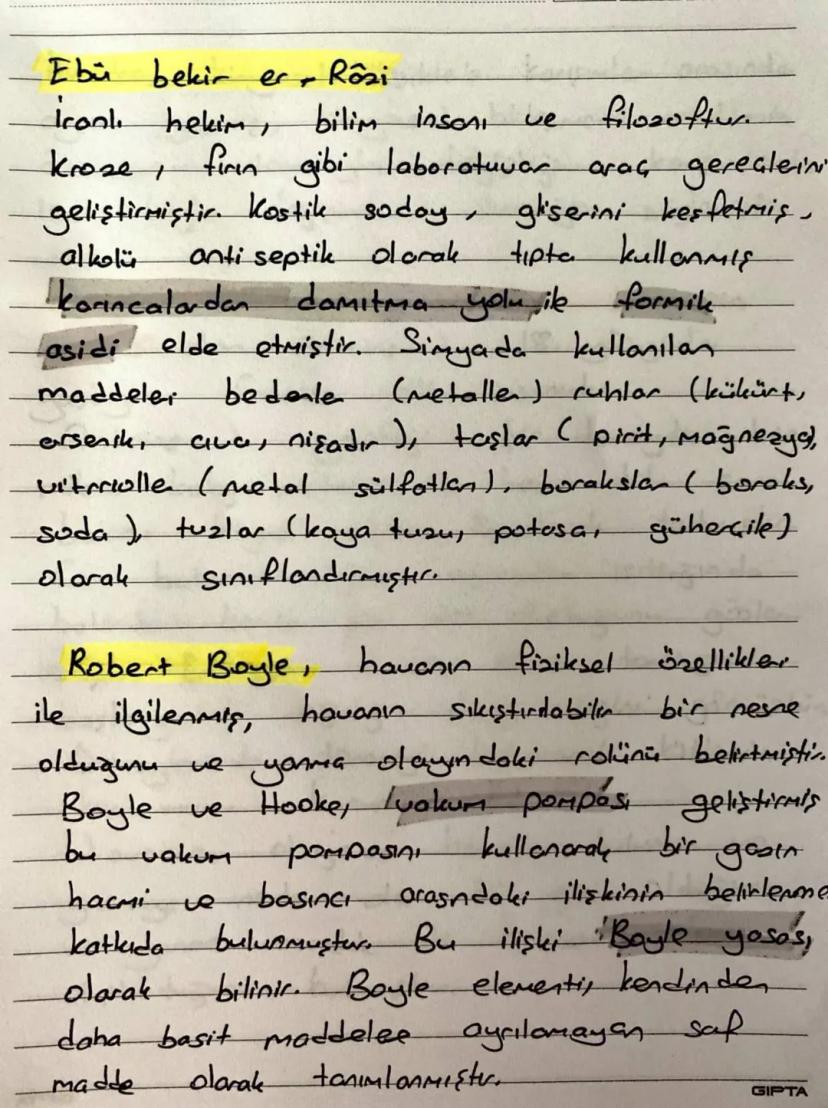 Ebû bekir er-Râzi
İranlı hekim, bilim insanı ve filozoftur.
Kroze, fırın gibi laboratuvar araç gereçlerini
geliştirmiştir. Kostik soday, gliserini keşfetmiş,
alkolü antiseptik olarak tıpta kullanmış
karıncalardan damıtma yolu ile formik
asidi elde etmiştir. Simyada kullanılan
maddeler bedenle (metaller) ruhlar (kükürt,
arsenik, cıva, nişadır), taşlar (pirit, mağnezya),
vitriolle (metal sülfatları), borakslar (boraks,
soda), tuzlar (kaya tuzu, potasa, güherçile)
olarak sınıflandırmıştır.
Robert Boyle, havanın fiziksel özellikler
ile ilgilenmiş, havanın sıkıştırılabilir bir nesne
olduğunu ve yanma olayındaki rolünü belirtmiştir.
Boyle ve Hooke, vakum pompası geliştirmiş
bu vakum pompasını kullanarak bir gazın
hacmi ve basıncı arasındaki ilişkinin belirlenme
katkıda bulunmuştur. Bu ilişki 'Boyle yasası,
olarak bilinir. Boyle elementi, kendinden
daha basit maddelee ayrılamayan saf
madde olarak tanımlanmıştır.
GIPTA